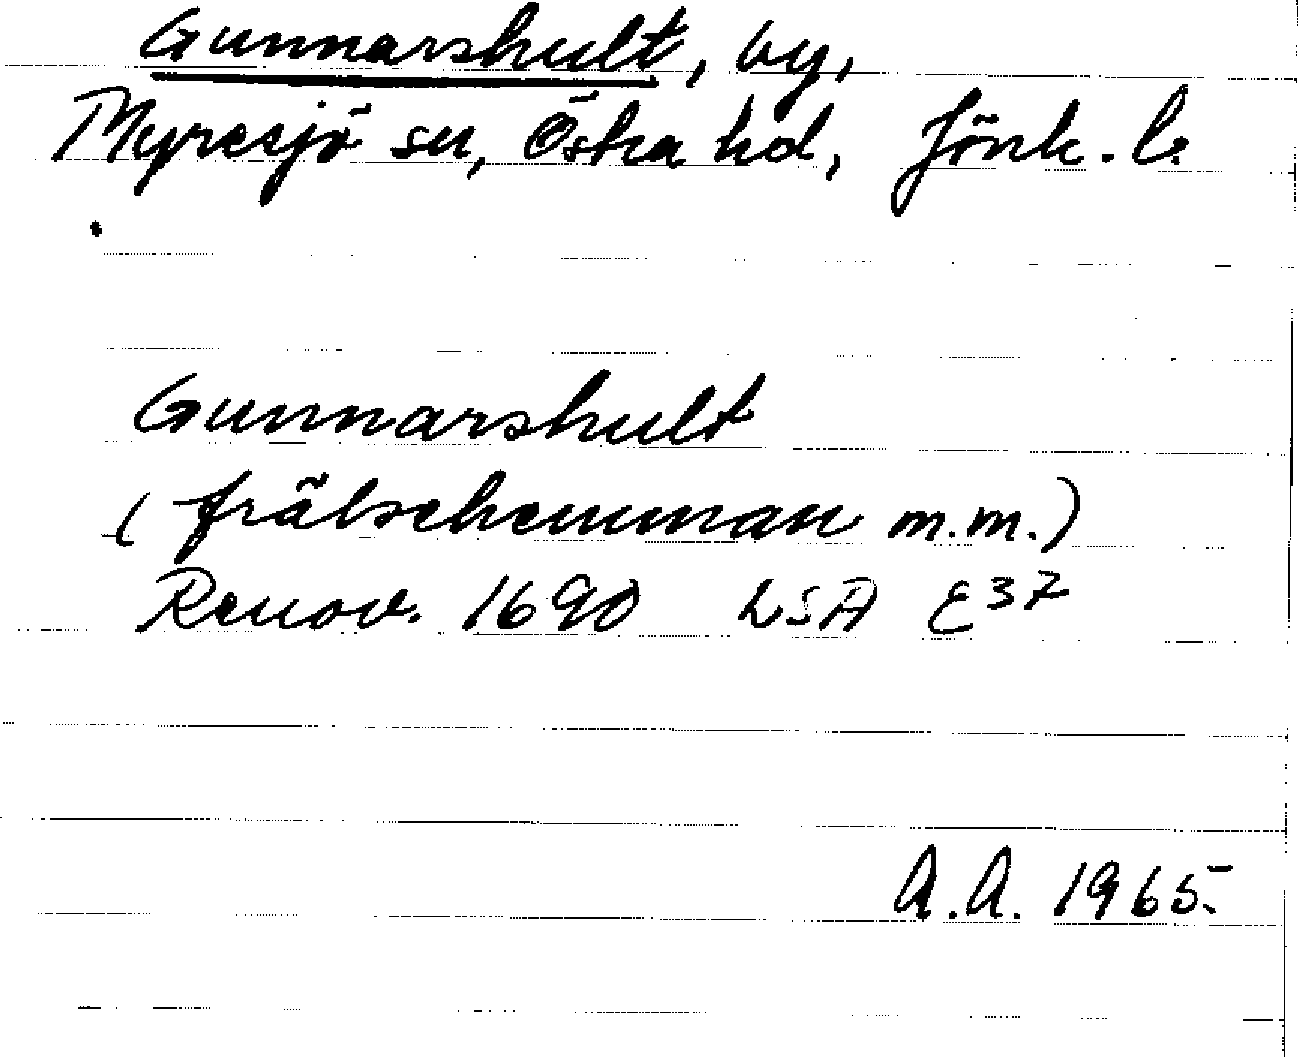 Gunnarshult, by,
Myresjö sn, Östra hd, Jönk. l.
Gunnarshult
(frälsehemman m.m.)
Renov. 1690 LSA E37
A.A. 1965.